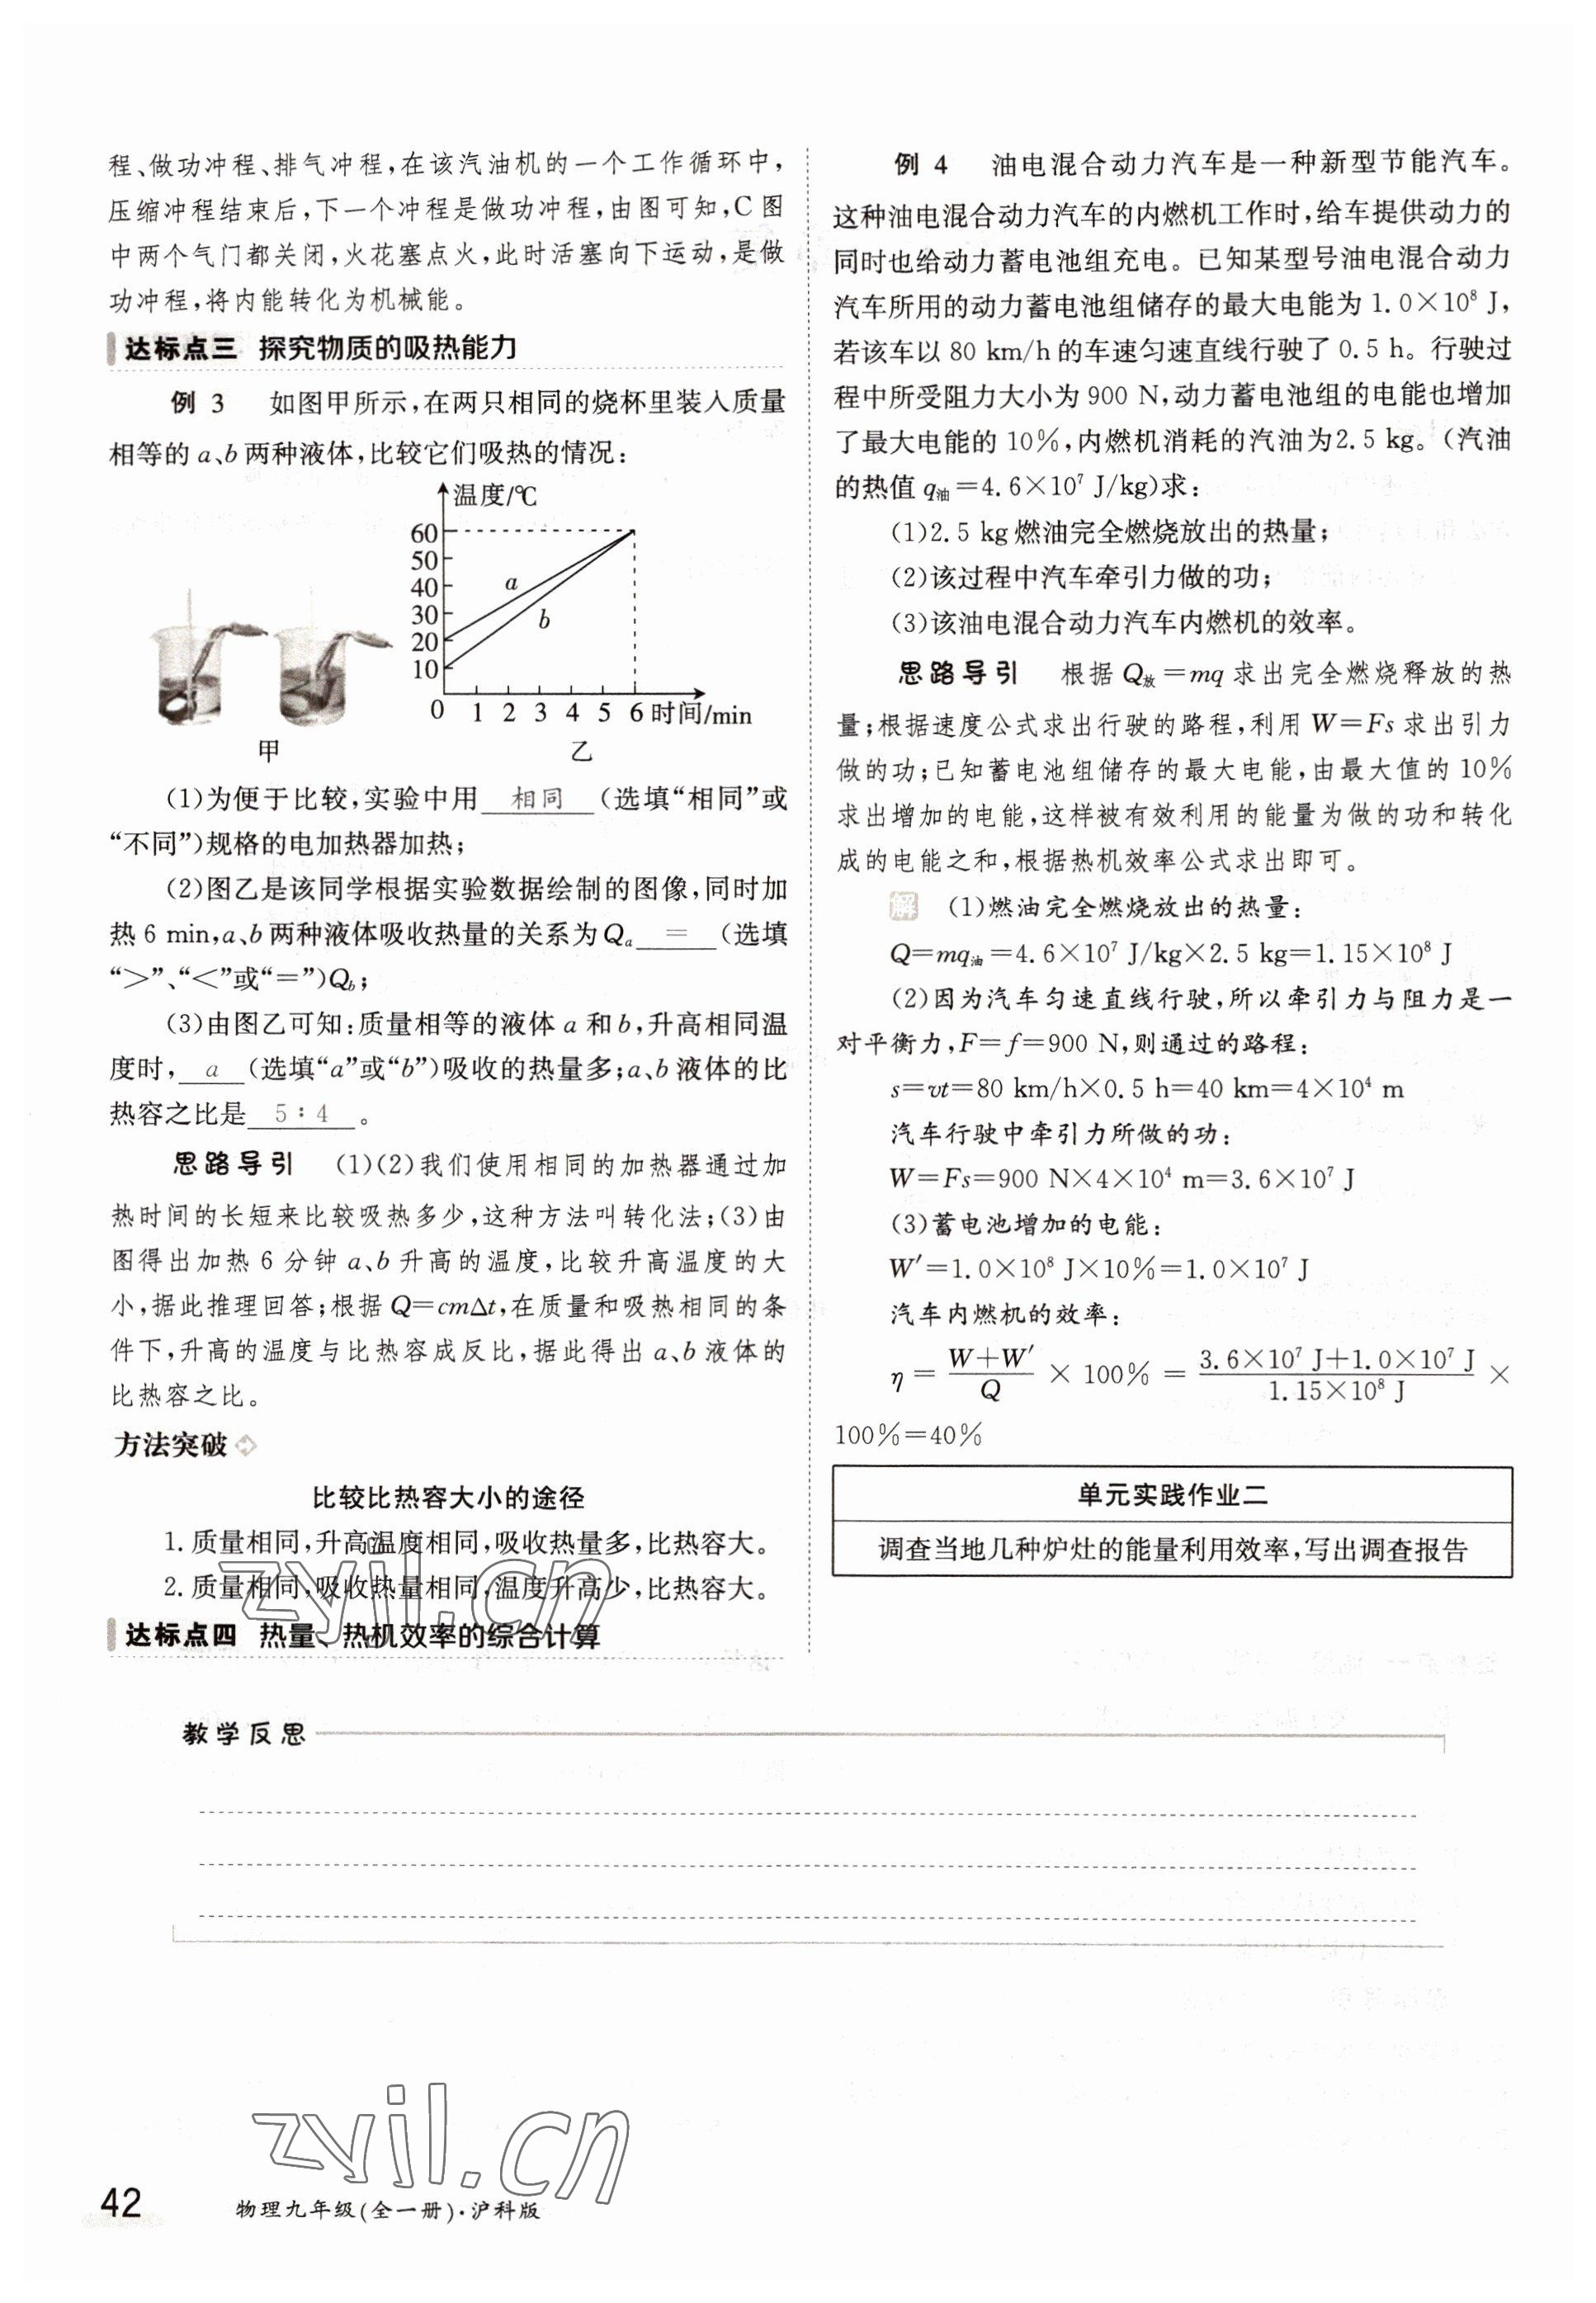 程、做功冲程、排气冲程,在该汽油机的一个工作循环中,
压缩冲程结束后,下一个冲程是做功冲程,由图可知,C图
中两个气门都关闭,火花塞点火,此时活塞向下运动,是做
功冲程,将内能转化为机械能。
达标点三 探究物质的吸热能力
例 3 如图甲所示,在两只相同的烧杯里装入质量
相等的 a、b 两种液体,比较它们吸热的情况:
温度/℃
60
50
40
30
20
10
a
b
0 1 2 3 4 5 6 时间/min
甲 乙
(1)为便于比较,实验中用 相同 (选填“相同”或
“不同”)规格的电加热器加热;
(2)图乙是该同学根据实验数据绘制的图像,同时加
热 6 min,a、b 两种液体吸收热量的关系为Qₐ = (选填
“>”、“<”或“=”)Q_b;
(3)由图乙可知:质量相等的液体 a 和 b,升高相同温
度时, a (选填“a”或“b”)吸收的热量多;a、b 液体的比
热容之比是 5∶4 。
思路导引 (1)(2)我们使用相同的加热器通过加
热时间的长短来比较吸热多少,这种方法叫转化法;(3)由
图得出加热 6 分钟 a、b 升高的温度,比较升高温度的大
小,据此推理回答;根据 Q=cmΔt,在质量和吸热相同的条
件下,升高的温度与比热容成反比,据此得出 a、b 液体的
比热容之比。
方法突破
比较比热容大小的途径
1. 质量相同,升高温度相同,吸收热量多,比热容大。
2. 质量相同,吸收热量相同,温度升高少,比热容大。
达标点四 热量、热机效率的综合计算
例 4 油电混合动力汽车是一种新型节能汽车。
这种油电混合动力汽车的内燃机工作时,给车提供动力的
同时也给动力蓄电池组充电。已知某型号油电混合动力
汽车所用的动力蓄电池组储存的最大电能为 1.0×10⁸ J,
若该车以 80 km/h 的车速匀速直线行驶了 0.5 h。行驶过
程中所受阻力大小为 900 N,动力蓄电池组的电能也增加
了最大电能的 10%,内燃机消耗的汽油为2.5 kg。(汽油
的热值 q油=4.6×10⁷ J/kg)求:
(1)2.5 kg 燃油完全燃烧放出的热量;
(2)该过程中汽车牵引力做的功;
(3)该油电混合动力汽车内燃机的效率。
思路导引 根据 Q放=mq 求出完全燃烧释放的热
量;根据速度公式求出行驶的路程,利用 W=Fs 求出引力
做的功;已知蓄电池组储存的最大电能,由最大值的 10%
求出增加的电能,这样被有效利用的能量为做的功和转化
成的电能之和,根据热机效率公式求出即可。
解 (1)燃油完全燃烧放出的热量:
Q=mq油=4.6×10⁷ J/kg×2.5 kg=1.15×10⁸ J
(2)因为汽车匀速直线行驶,所以牵引力与阻力是一
对平衡力,F=f=900 N,则通过的路程:
s=vt=80 km/h×0.5 h=40 km=4×10⁴ m
汽车行驶中牵引力所做的功:
W=Fs=900 N×4×10⁴ m=3.6×10⁷ J
(3)蓄电池增加的电能:
W′=1.0×10⁸ J×10%=1.0×10⁷ J
汽车内燃机的效率:
η = (W+W′)/Q × 100% = (3.6×10⁷ J+1.0×10⁷ J)/(1.15×10⁸ J) ×
100%=40%
单元实践作业二
调查当地几种炉灶的能量利用效率,写出调查报告
教学反思
zyjl.cn
zyjl.cn
42
物理九年级(全一册)·沪科版